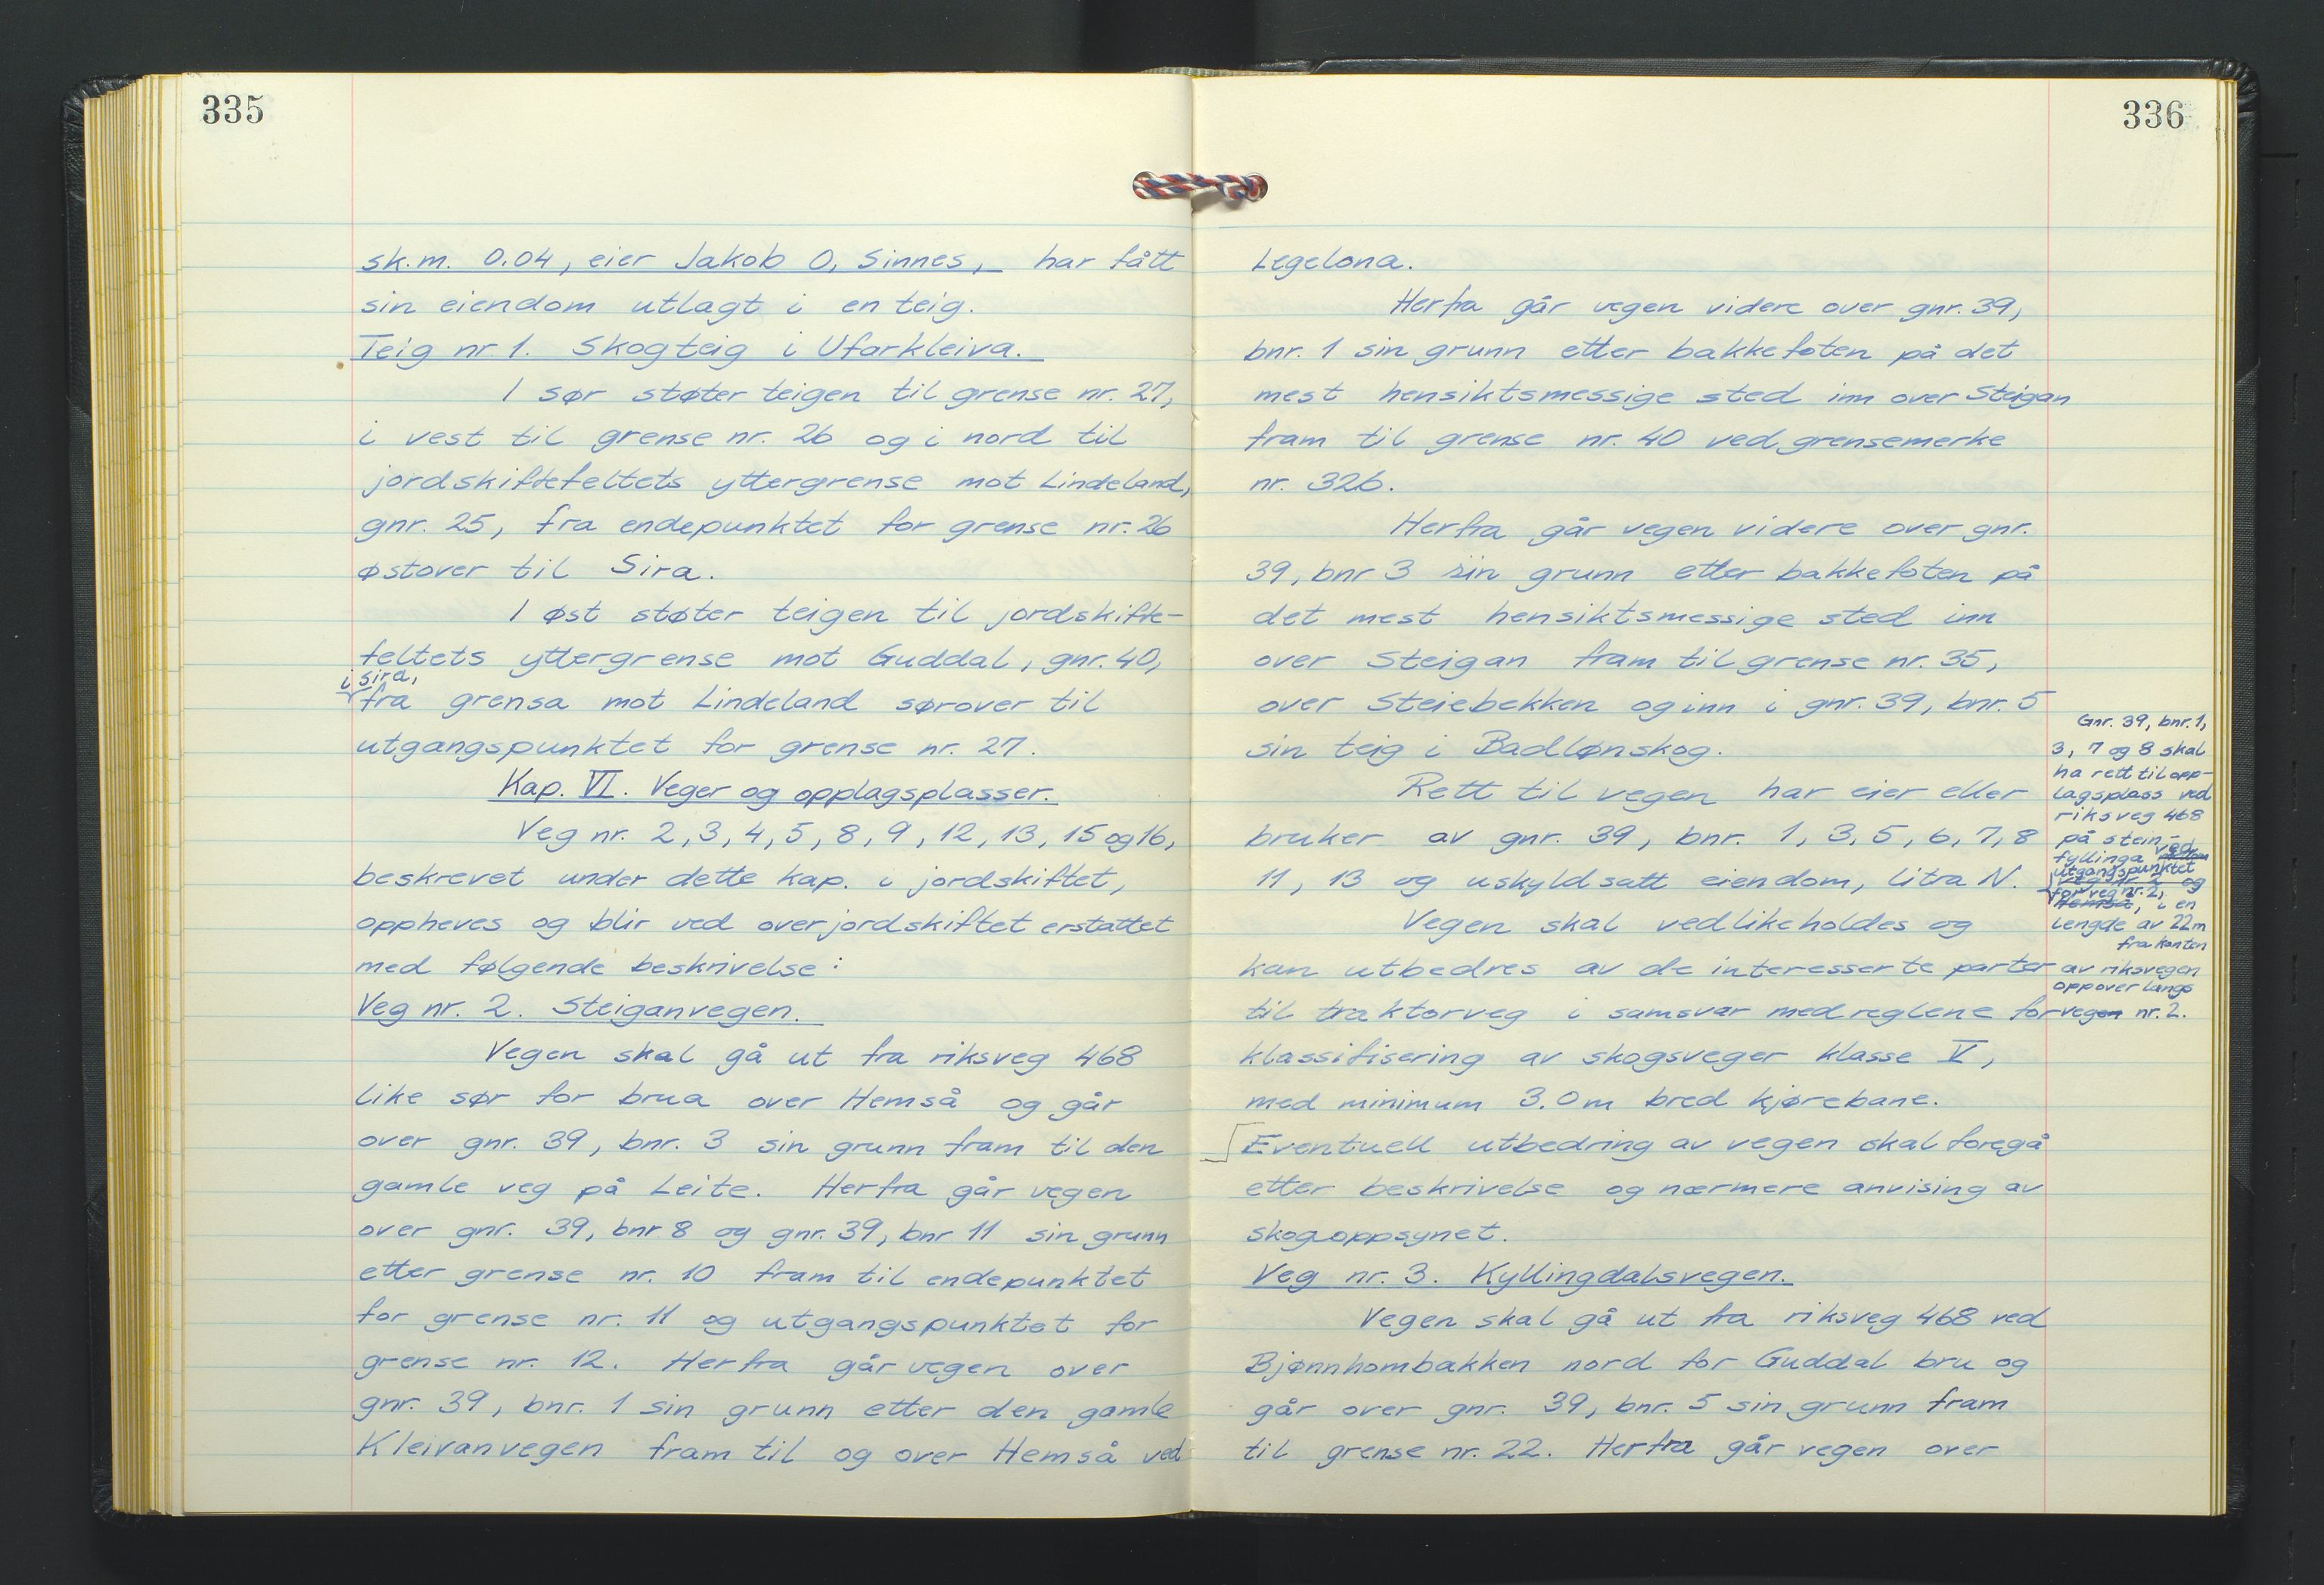 335
sk.m. 0.04, eier Jakob O. Sinnes, har fått
sin eiendom utlagt i en teig.
Teig nr 1. Skogteig i Ufarkleiva.
I sør støter teigen til grense nr. 27,
i vest til grense nr. 26 og i nord til
jordskiftefeltets yttergrense mot Lindeland,
gnr. 25, fra endepunktet for grense nr. 26
østover til Sira.
I øst støter teigen til jordskifte-
feltets yttergrense mot Guddal, gnr. 40,
i Sira,
fra grensa mot Lindeland sørover til
utgangspunktet for grense nr. 27.
Kap. VI. Veger og opplagsplasser.
Veg nr. 2, 3, 4, 5, 8, 9, 12, 13, 15 og 16,
beskrevet under dette kap. i jordskiftet,
oppheves og blir ved overjordskiftet erstattet
med følgende beskrivelse:
Veg nr. 2. Steiganvegen.
Vegen skal gå ut fra riksveg 468
like sør for brua over Hemså og går
over gnr. 39, bnr. 3 sin grunn fram til den
gamle veg på Leite. Herfra går vegen
over gnr. 39, bnr 8 og gnr. 39, bnr 11 sin grunn
etter grense nr. 10 fram til endepunktet
for grense nr. 11 og utgangspunktet for
grense nr. 12. Herfra går vegen over
gnr. 39, bnr. 1 sin grunn etter den gamle
Kleivanvegen fram til og over Hemså ved
336
Legelona.
Herfra går vegen videre over gnr. 39,
bnr. 1 sin grunn etter bakkefoten på det
mest hensiktsmessige sted inn over Steigan
fram til grense nr. 40 ved grensemerke
nr. 326.
Herfra går vegen videre over gnr.
39, bnr 3 sin grunn etter bakkefoten på
det mest hensiktsmessige sted inn
over Steigan fram til grense nr. 35,
over Steiebekken og inn i gnr. 39, bnr. 5
sin teig i Badlønskog.
Rett til vegen har eier eller
bruker av gnr. 39, bnr. 1, 3, 5, 6, 7, 8
11, 13 og uskyldsatt eiendom, litra N.
Vegen skal vedlikeholdes og
kan utbedres av de interesserte parter
til traktorveg i samsvar med reglene for
klassifisering av skogsveger klasse V,
med minimum 3.0m bred kjørebane.
Eventuell utbedring av vegen skal foregå
etter beskrivelse og nærmere anvising av
skogoppsynet.
Veg nr. 3. Kyllingdalsvegen.
Vegen skal gå ut fra riksveg 468 ved
Bjønnhombakken nord for Guddal bru og
går over gnr. 39, bnr. 5 sin grunn fram
til grense nr. 22. Herfra går vegen over
Gnr. 39, bnr. 1,
3, 7 og 8 skal
ha rett til opp-
lagsplass ved
riksveg 468
på stein-
fyllinga ved
utgangspunktet
veg nr. 2 og
for veg nr. 2,
Hemså, i en
lengde av 22m
fra kanten
av riksvegen
oppover langs
vegen nr. 2.